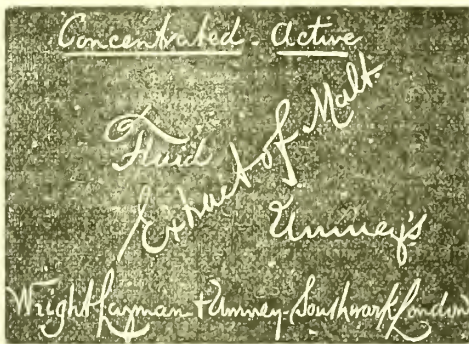 Concentrated - Active
Fluid
Extract of Malt.
Umney's
Wright Layman + Umney - Southwark London